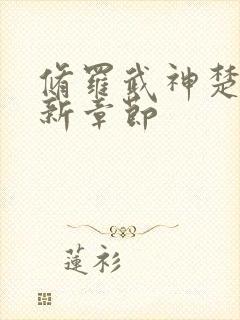 脩羅武神楚
新章節
蓮衫